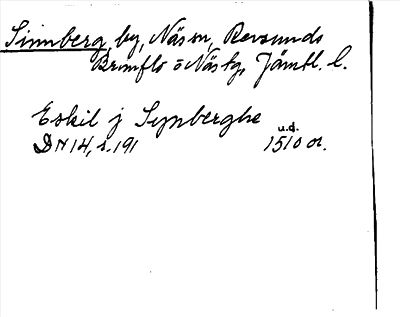 Sinnberg, by, Näs sn, Revsunds
Brunflo o Näs tg, Jämtl. l.
Eskil j Synberghe
u.d.
DN 14, s. 191 1510 or.